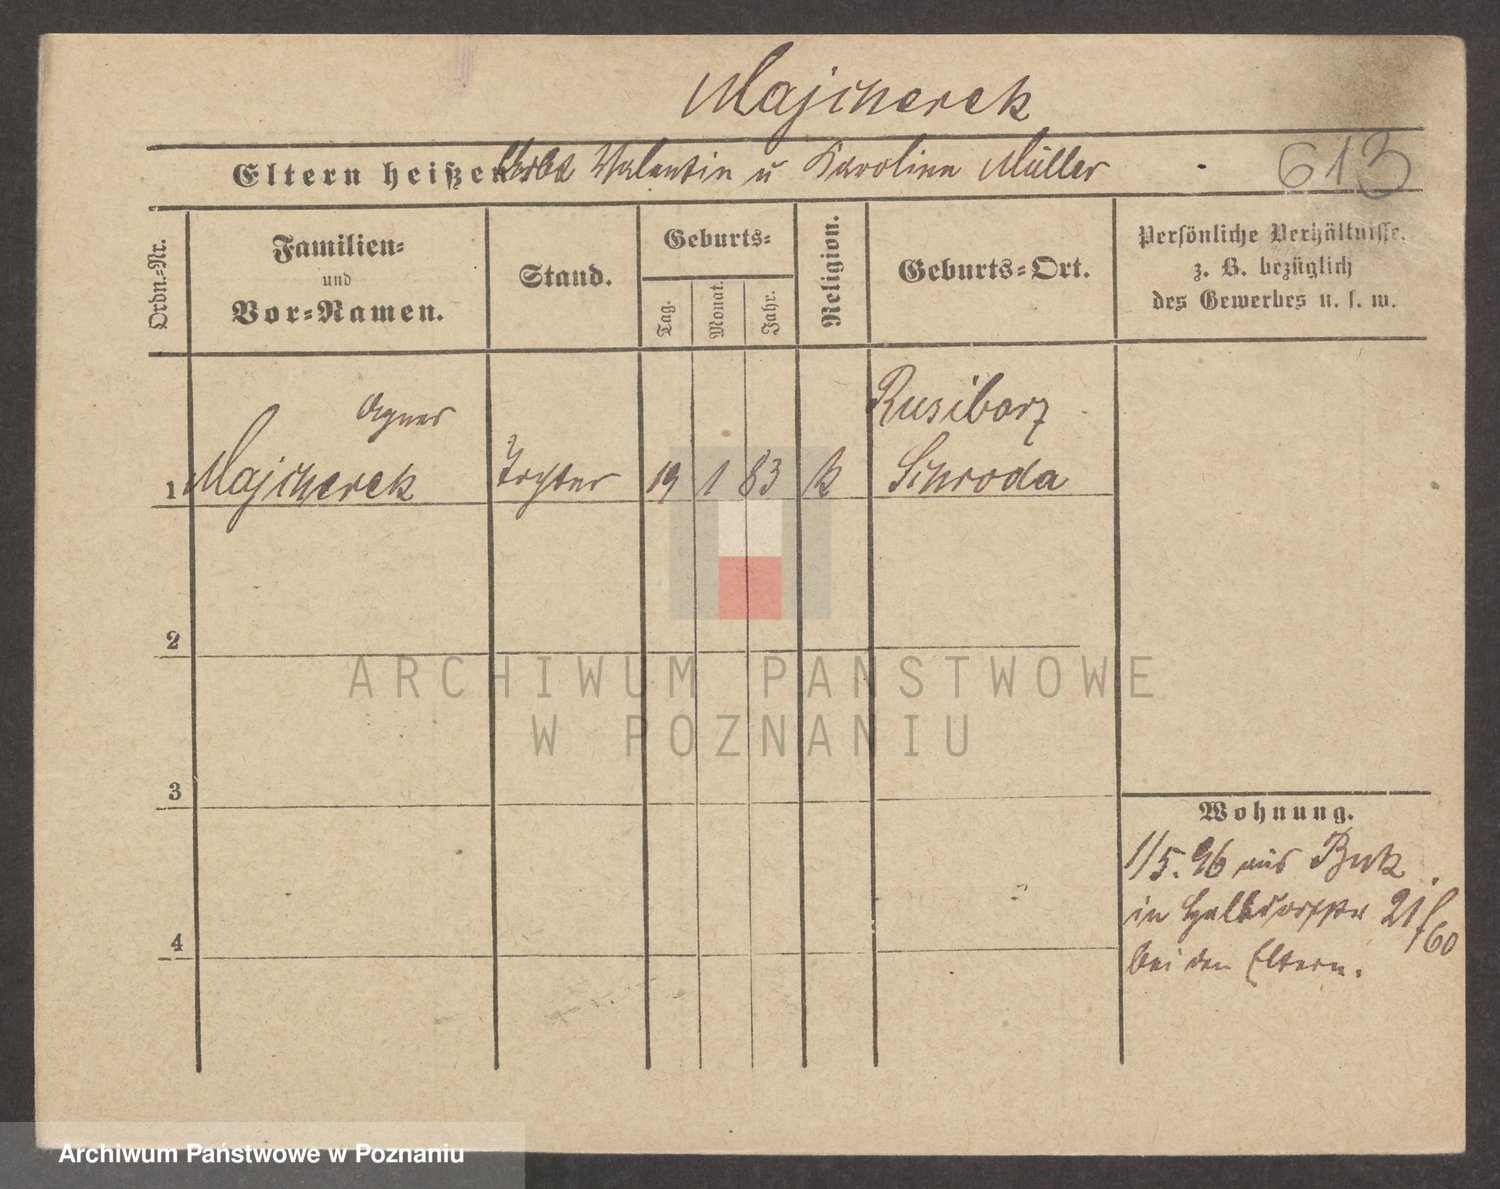 Majcherek
Eltern heißen Valentin u Karoline Müller
613
Ordn.-Nr.
Familien-
und
Vor-Namen.
Stand.
Geburts-
Tag.
Monat.
Jahr.
Religion.
Geburts-Ort.
Persönliche Verhältnisse.
z. B. bezüglich
des Gewerbes u. s. w.
Agnes
Rusiborz
1 Majcherek Tochter 19 1 83 k Schroda
2
3
4
Wohnung.
1/5. 96 aus Buk.
in Halbdorfstr 21/60
bei den Eltern.
ARCHIWUM PANSTWOWE
W POZNANIU
Archiwum Państwowe w Poznaniu